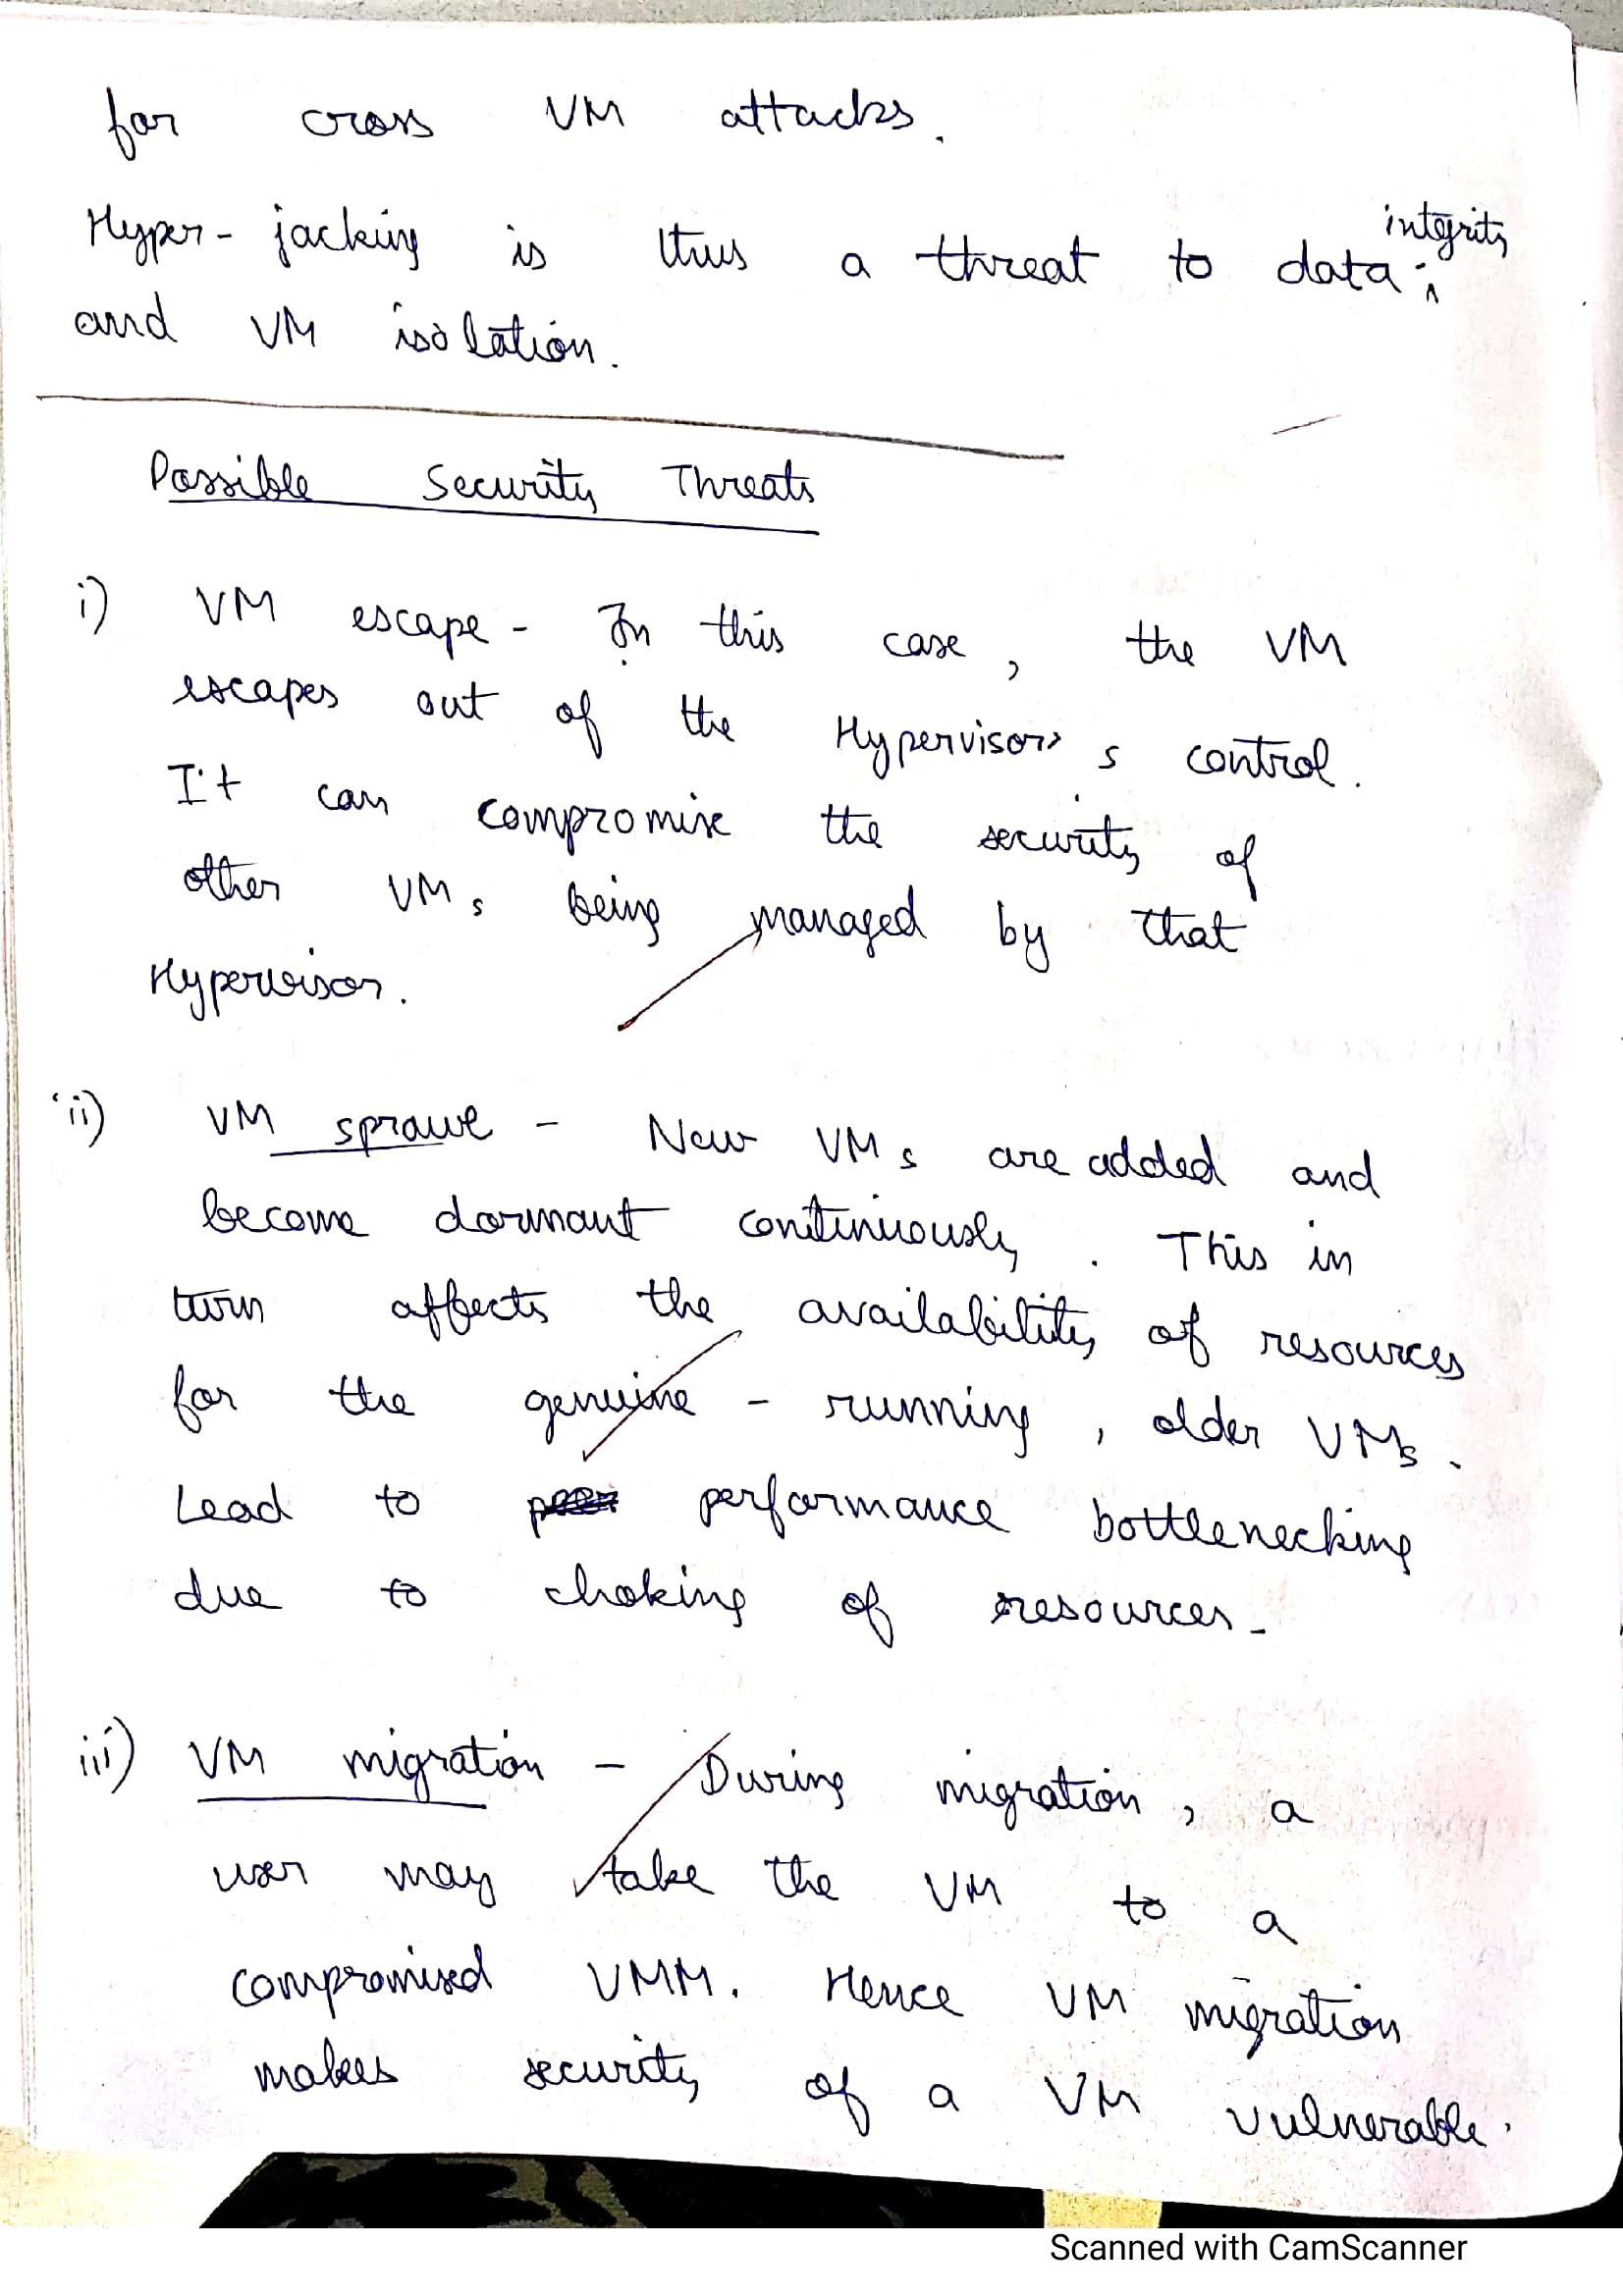 for cross VM attacks.
Hyper-jacking is thus a threat to data integrity
and VM isolation.
Possible Security Threats
i) VM escape - In this case, the VM
escapes out of the Hypervisor's control.
It can compromise the security of
other VMs being managed by that
Hypervisor.
ii) VM sprawl - New VMs are added and
become dormant continuously. This in
turn affects the availability of resources
for the genuine - running, older VMs.
Lead to performance bottlenecking
due to choking of resources.
iii) VM migration - During migration, a
user may take the VM to a
compromised VMM. Hence VM migration
makes security of a VM vulnerable.
Scanned with CamScanner